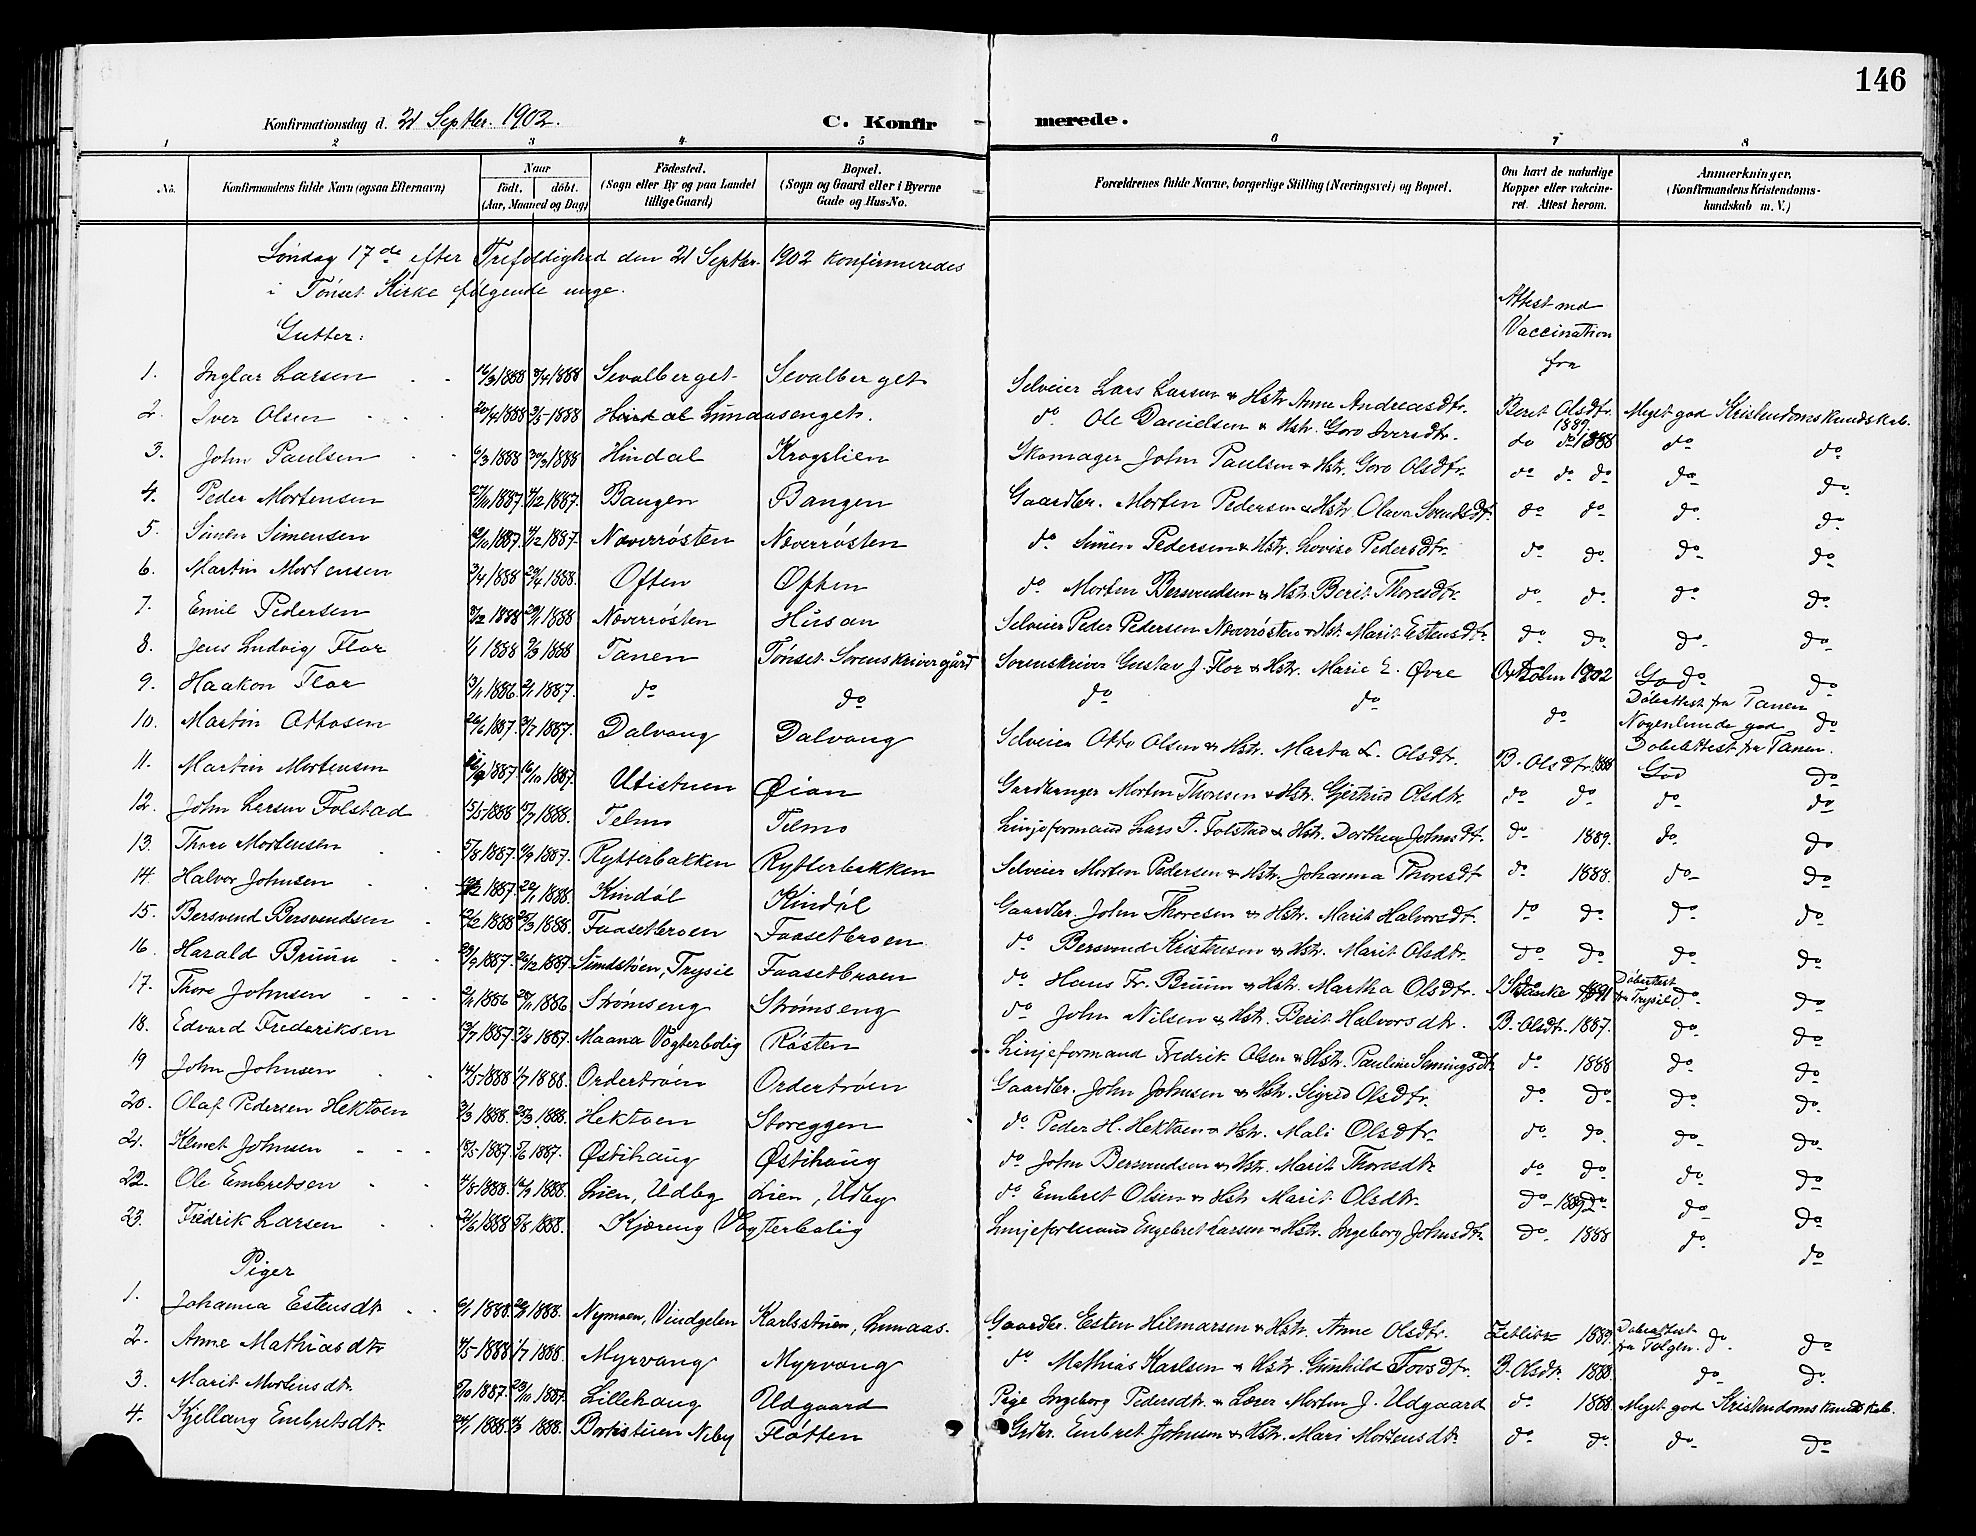 146
Konfirmationsdag d. 21 Septbr. 1902. C. Konfirmerede.
1 2 3 4 5 6 7 8
No. Konfirmandens fulde Navn (ogsaa Efternavn) Naar født. døbt. (Aar, Maaned og Dag) Födested. (Sogn eller By og paa Landet tillige Gaard) Bopæl. (Sogn og Gaard eller i Byerne Gade og Hus-No. Forældrenes fulde Navne, borgerlige Stilling (Næringsvei) og Bopæl. Om havt de naturlige Kopper eller vakcineret. Attest herom. Anmærkninger. (Konfirmandens Kristendomskundskab m. V.)
Søndag 17de efter Trefoldighed den 21 Septbr. 1902 konfirmeredes
i Tönset Kirke følgende unge.
Gutter: Attest med Vaccination fra
1. Inglar Larsen 16/3 1888 2/4 1888 Sevalberget Sevalberget Selveier Lars Larsen & Hstr. Anne Andreasdtr. Beret Olsdtr. 1889. Meget god Kristendomskundskab.
2. Iver Olsen 20/4 1888 3/5 1888 Lunaasenget. do Ole Danielsen & Hstr. Goro Iversdtr. do do 1888 do do
3. John Paulsen 6/3 1888 30/3 1888 Hindal Krogslien Skomager John Paulsen & Hstr. Goro Olsdtr. do do do do do
4. Peder Mortensen 27/11 1887. 4/12 1887. Bangen Bangen Gaardbr. Morten Pedersen & Hstr. Olava Svendsdtr. do do do do
5. Simen Simensen 12/10 1887. 4/12 1887. Næverrösten Næverrösten do Simen Pedersen & Hstr. Lovise Pedersdtr. do do do do
6. Martin Mortensen 3/4 1888 29/4 1888. Often Often do Morten Bersvendsen & Hstr. Berit Thoresdtr. do do do do
7. Emil Pedersen 1888 29/1 1888 Næverrösten Husan Selveier Peder Pedersen Næverrösten & Hst. Marit Estensdtr. do do do do
8. Jens Ludvig Flor 1/1 1888 1888 Tanen Tønset Sorenskrivergård Sorenskriver Gustav J. Flor & Hstr. Marie E. Øvre 1902 God do Döbeattest fra Tanen
9. Haakon Flor 13/11 1886 2/1 1887. do do do do do Nogenlunde god do Döbeattest fra Tanen.
10. Martin Ottosen 26/6 1887 31/7 1887. Dalvang Dalvang Selveier Otto Olsen & Hstr. Marta L. Olsdtr. B. Olsdtr. 1888 God do
11. Martin Mortensen 1887 16/10 1887. Utistuen Øian Gardbruger Morten Thoresen & Hstr. Gjertrud Olsdtr. do do do do
12. John Larsen Tolstad 15/5 1888 1888. Telmo Telmo Linjeformand Lars T. Tolstad & Hstr. Dorthea Johnsdtr. do 1889. do do
13. Thore Mortensen 5/8 1887. 4/9 1887. Rytterbakken Rytterbakken Selveier Morten Pedersen & Hstr. Johanna Thoresdtr do 1888. do do
14. Halvor Johnsen 1887. 22/1 1888. Kindöl Kindöl Gaardbr. John Thoresen & Hstr. Marit Halvorsdtr. do do do do
15. Bersvend Bersvendsen 12/2 1888 25/3 1888. Faasetbroen Faasetbroen do Bersvend Kristensen & Hstr. Marit Olsdtr. do do do do
16. Harald Bruun 29/9 1887. 26/12 1887 Sundstöen, Trysil Faasetbroen do Hans Fr. Bruun & Hstr. Martha Olsdtr. 1891 Döbeattest fra Trysil do do
17. Thore Johnsen 2/11 1886 28/11 1886 Strömseng Strömseng do John Nilsen & Hstr. Berit Halvorsdtr. B. Olsdt. 1887. do do
18. Edvard Frederiksen 13/7 1887. 1887. Maana Vogterbolig Rösten Linjeformand Fredrik Olsen & Hstr. Pauline do 1888 do do
19 John Johnsen 14/5 1888 1/7 1888. Ordertröen Ordertröen Gaardbr. John Johnsen & Hstr. Sigrid Olsdtr. do do do do
20. Olaf Pedersen Hektoen 3/3 1888. 25/3 1888. Hektoen Storeggen do Peder H. Hektoen & Hstr. Mali Olsdtr. do do do do
21. Johnsen 15/5 1887. 5/6 1887. Østihaug Østihaug do John Bersvendsen & Hstr. Marit Thoresdtr do do do do
22. Ole Embretsen 1888. 1888. Lien, Udby Lien, Udby do Embret Olsen & Hstr Marit Olsdtr. do 1889 do do
23. Fredrik Larsen 22/6 1888 5/8 1888. Kjæreng Vogterbolig Linjeformand Engebret Larsen & Hstr. Ingeborg Johnsdtr. do 1888 do do
Piger
1. Johanna Estensdtr 6/1 1888. 1888. Nymoen, Vindgelen Karlsstuen, Lunaas. Gaardbr. Esten Hilmarsen & Hstr. Anne Olsdtr. 1889. Döbeattest fra Tolgen. do do
2. Anne Mathiasdtr 14/5 1888 1/7 1888. Myrvang Myrvang do Mathias Karlsen & Hstr. Gunhild Tovsdtr. B. Olsdt. 1888. do do
3. Marit Mortensdtr. 5/10 1887. 23/10 1887. Lillehaug Udgaard Pige Ingeborg Pedersdtr. & Lærer Morten J. Udgaard do 1888. Meget god Kristendomskundskab.
4. Kjellaug Embretsdtr. 24/1 1888. 1888. Bortistuen Neby Flötten Grdbr. Embret Johnsen & Hstr. Mari Mortensdtr. do do do do